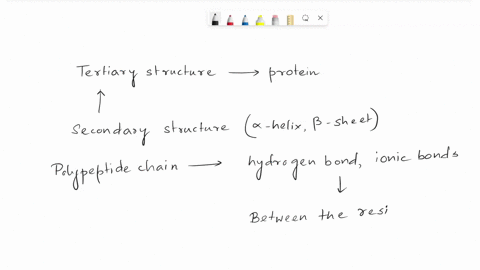 Tertiary structure → protein
↑
Secondary structure (α-helix, β-sheet)
Polypeptide chain → hydrogen bond, ionic bonds
↓
Between the resi